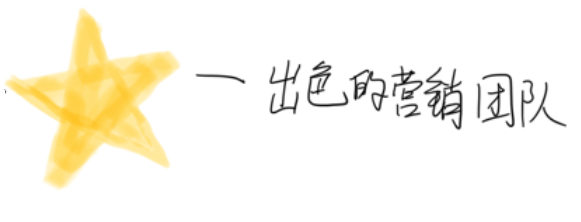 一 出色的营销团队